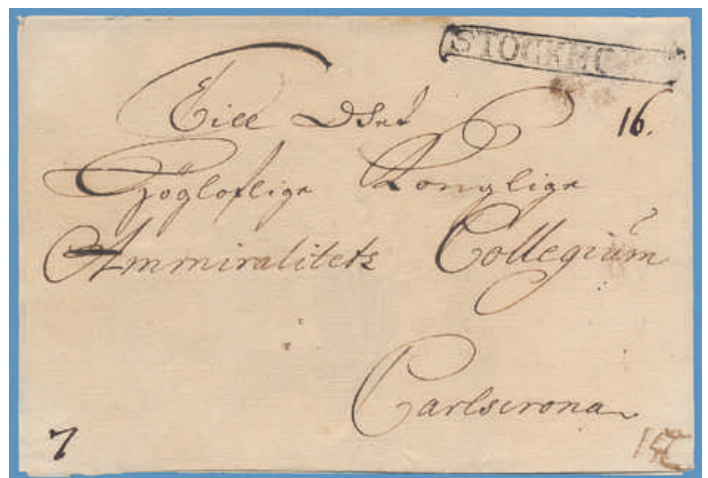 STOCKHOLM
16.
Till Det
Högloflige Konglige
Ammiralitets Collegium
i
Carlscrona
7